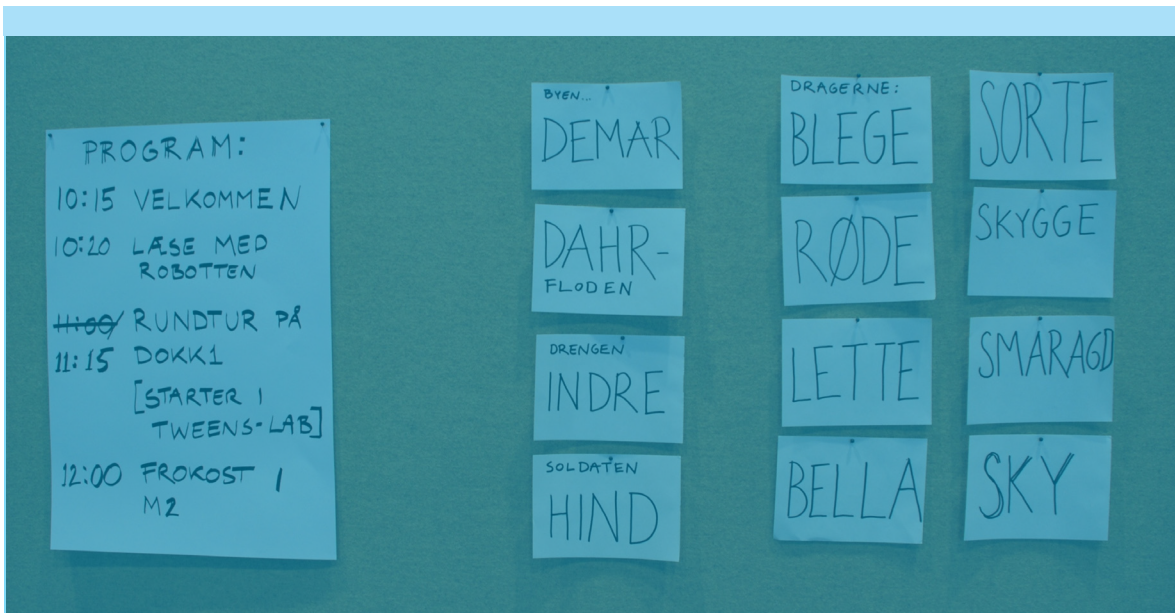 PROGRAM:
10:15 VELKOMMEN
10:20 LÆSE MED
ROBOTTEN
11:00 RUNDTUR PÅ
11:15 DOKK1
[STARTER I
TWEENS-LAB]
12:00 FROKOST I
M2
BYEN...
DEMAR
DAHR-
FLODEN
DRENGEN
INDRE
SOLDATEN
HIND
DRAGERNE:
BLEGE
RØDE
LETTE
BELLA
SORTE
SKYGGE
SMARAGD
SKY